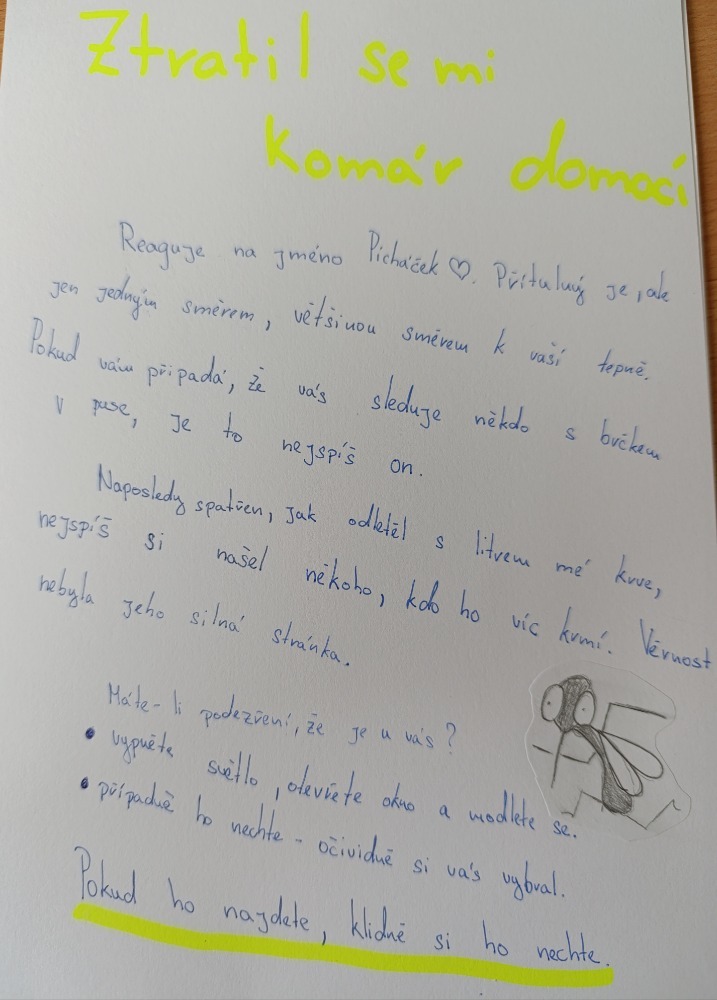 Ztratil se mi
komár domácí
Reaguje na jméno Picháček ♡. Přítulný je, ale
jen jedným směrem, většinou směrem k vaší tepně.
Pokud vám připadá, že vás sleduje někdo s brčkem
v puse, je to nejspíš on.
Naposledy spatřen, jak odletěl s litrem mé krve,
nejspíš si našel někoho, kdo ho víc krmí. Věrnost
nebyla jeho silná stránka.
Máte-li podezření, že je u vás?
• vypněte světlo, otevřete okno a modlete se.
• případně ho nechte - očividně si vás vybral.
Pokud ho najdete, klidně si ho nechte.